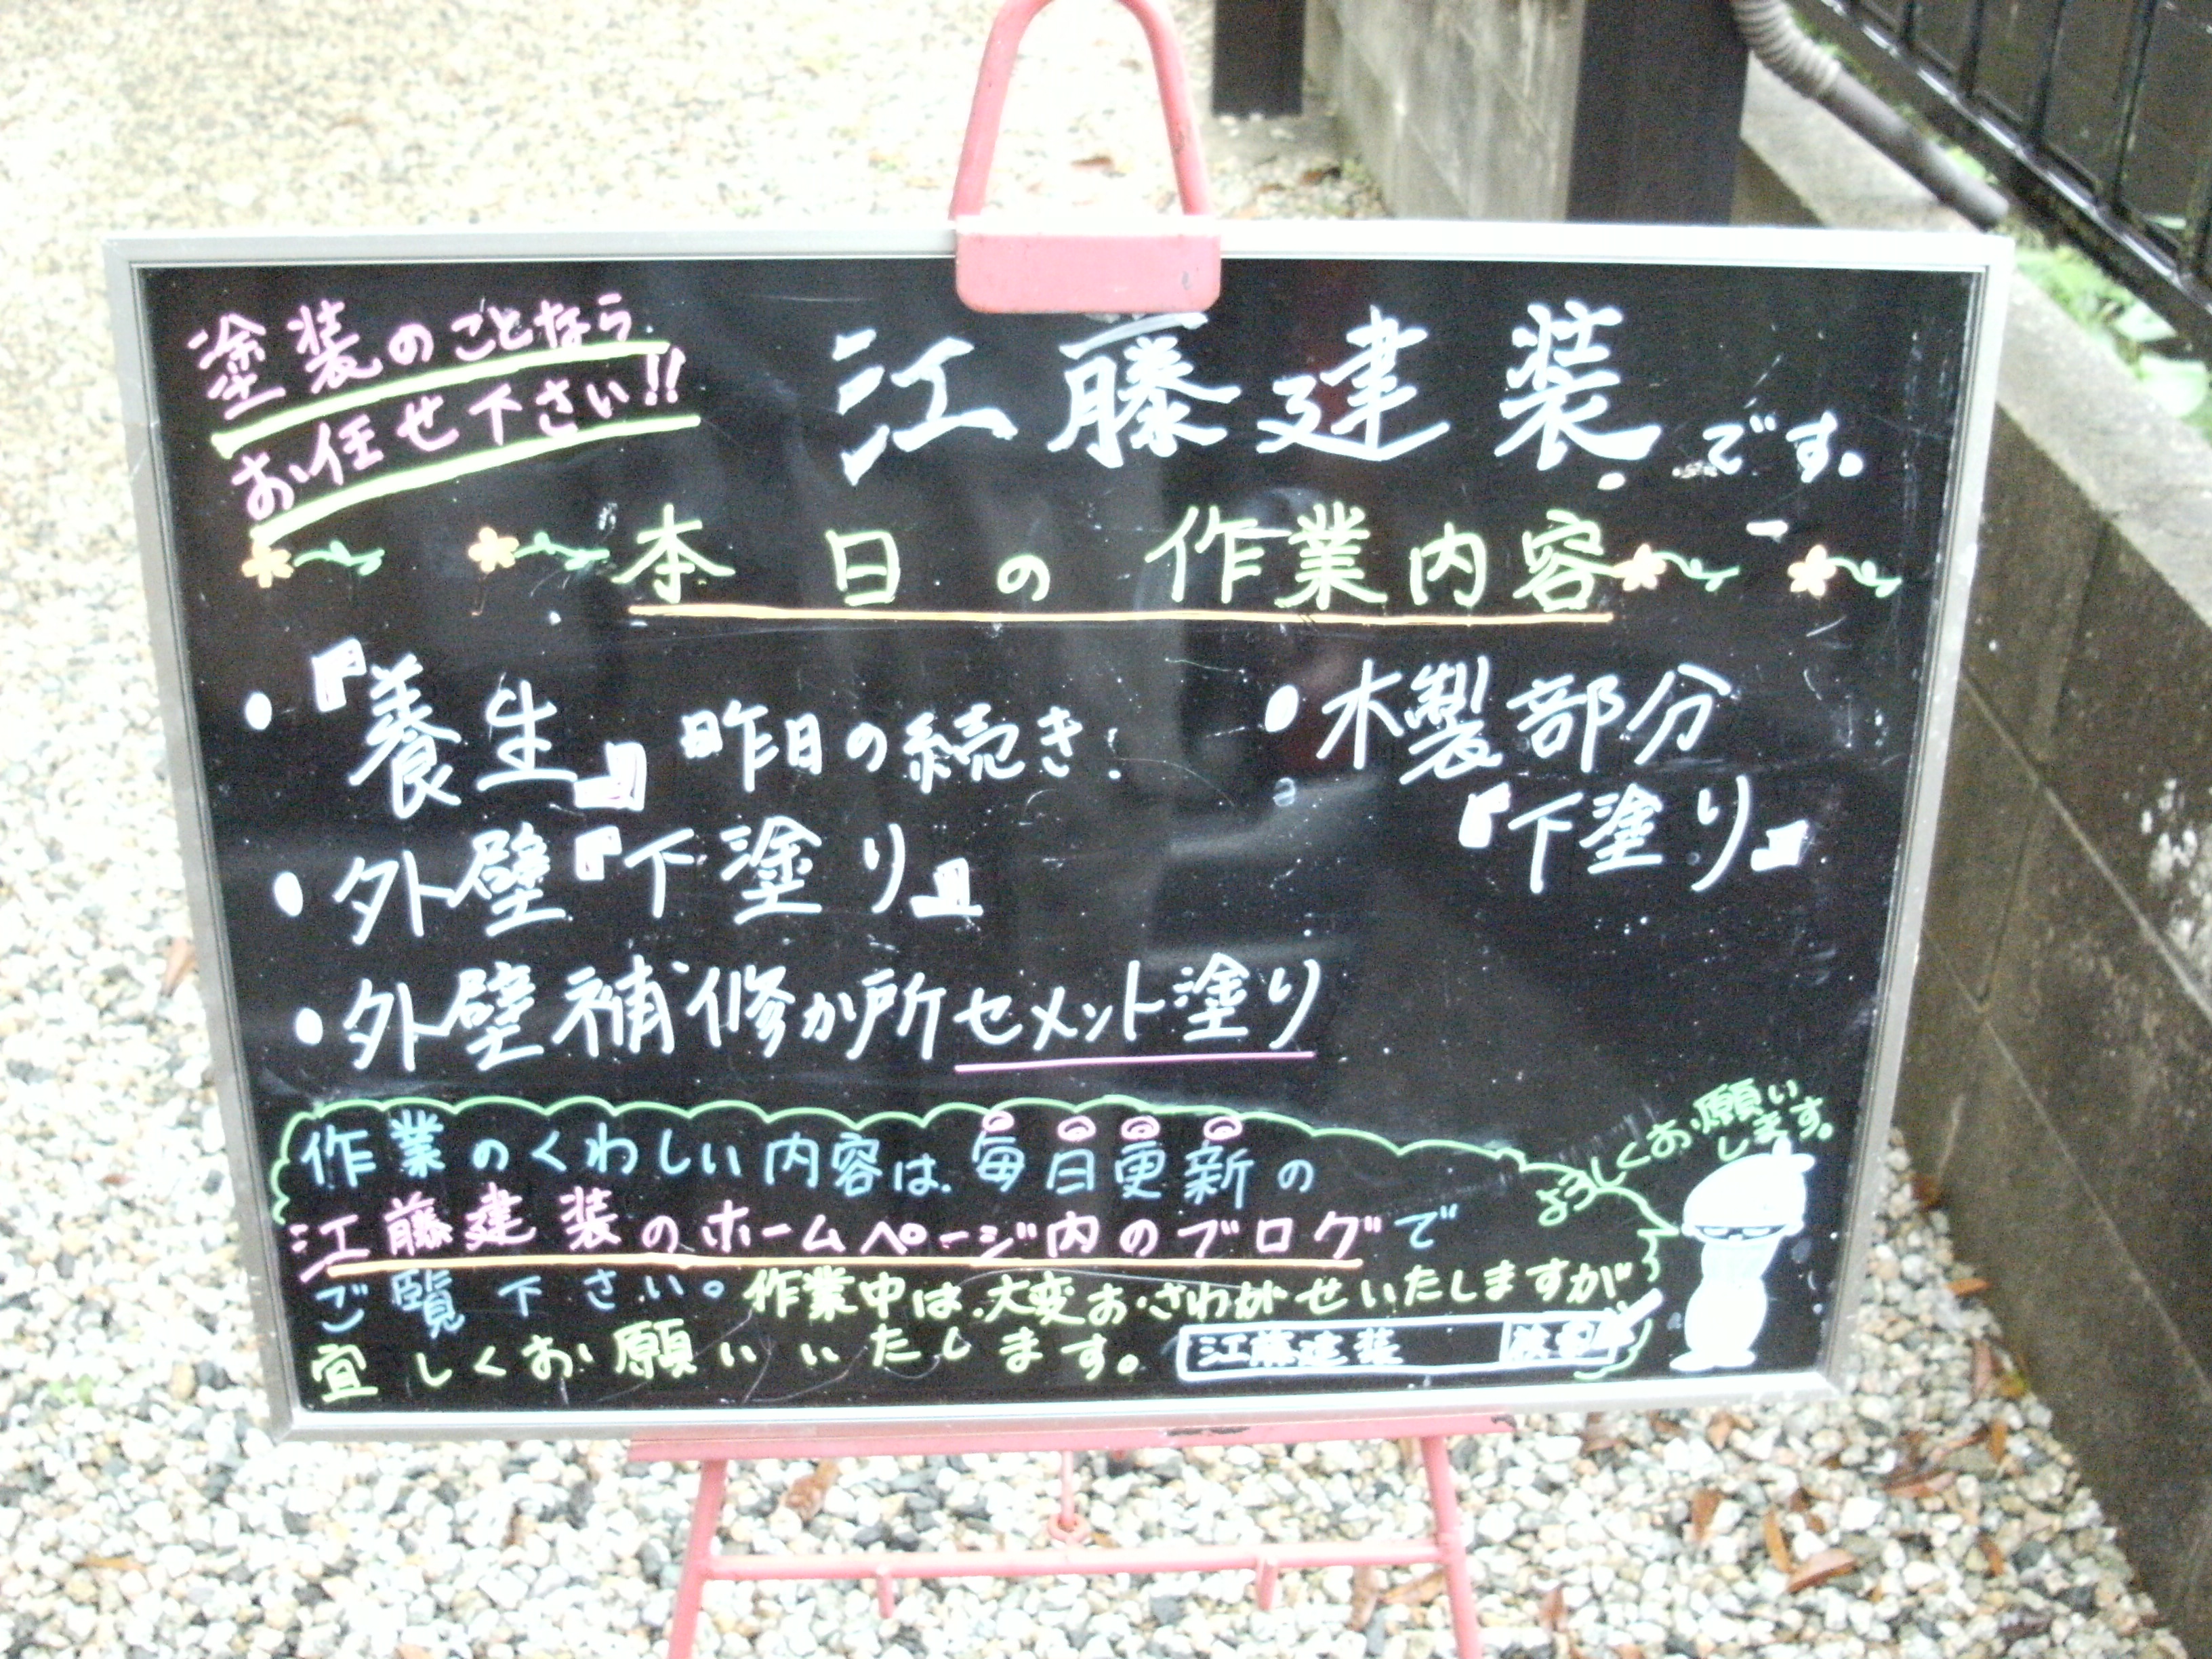 塗装のことなら
お任せ下さい!!
江藤建装です。
本日の作業内容
・『養生』昨日の続き!
・外壁『下塗り』
・外壁補修か所セメント塗り
・木製部分
『下塗り』
作業のくわしい内容は、毎日更新の
江藤建装のホームページ内のブログで
ご覧下さい。作業中は、大変おさわがせいたしますが
宜しくお願いいたします。
江藤建装 検索
よろしくお願い
します。